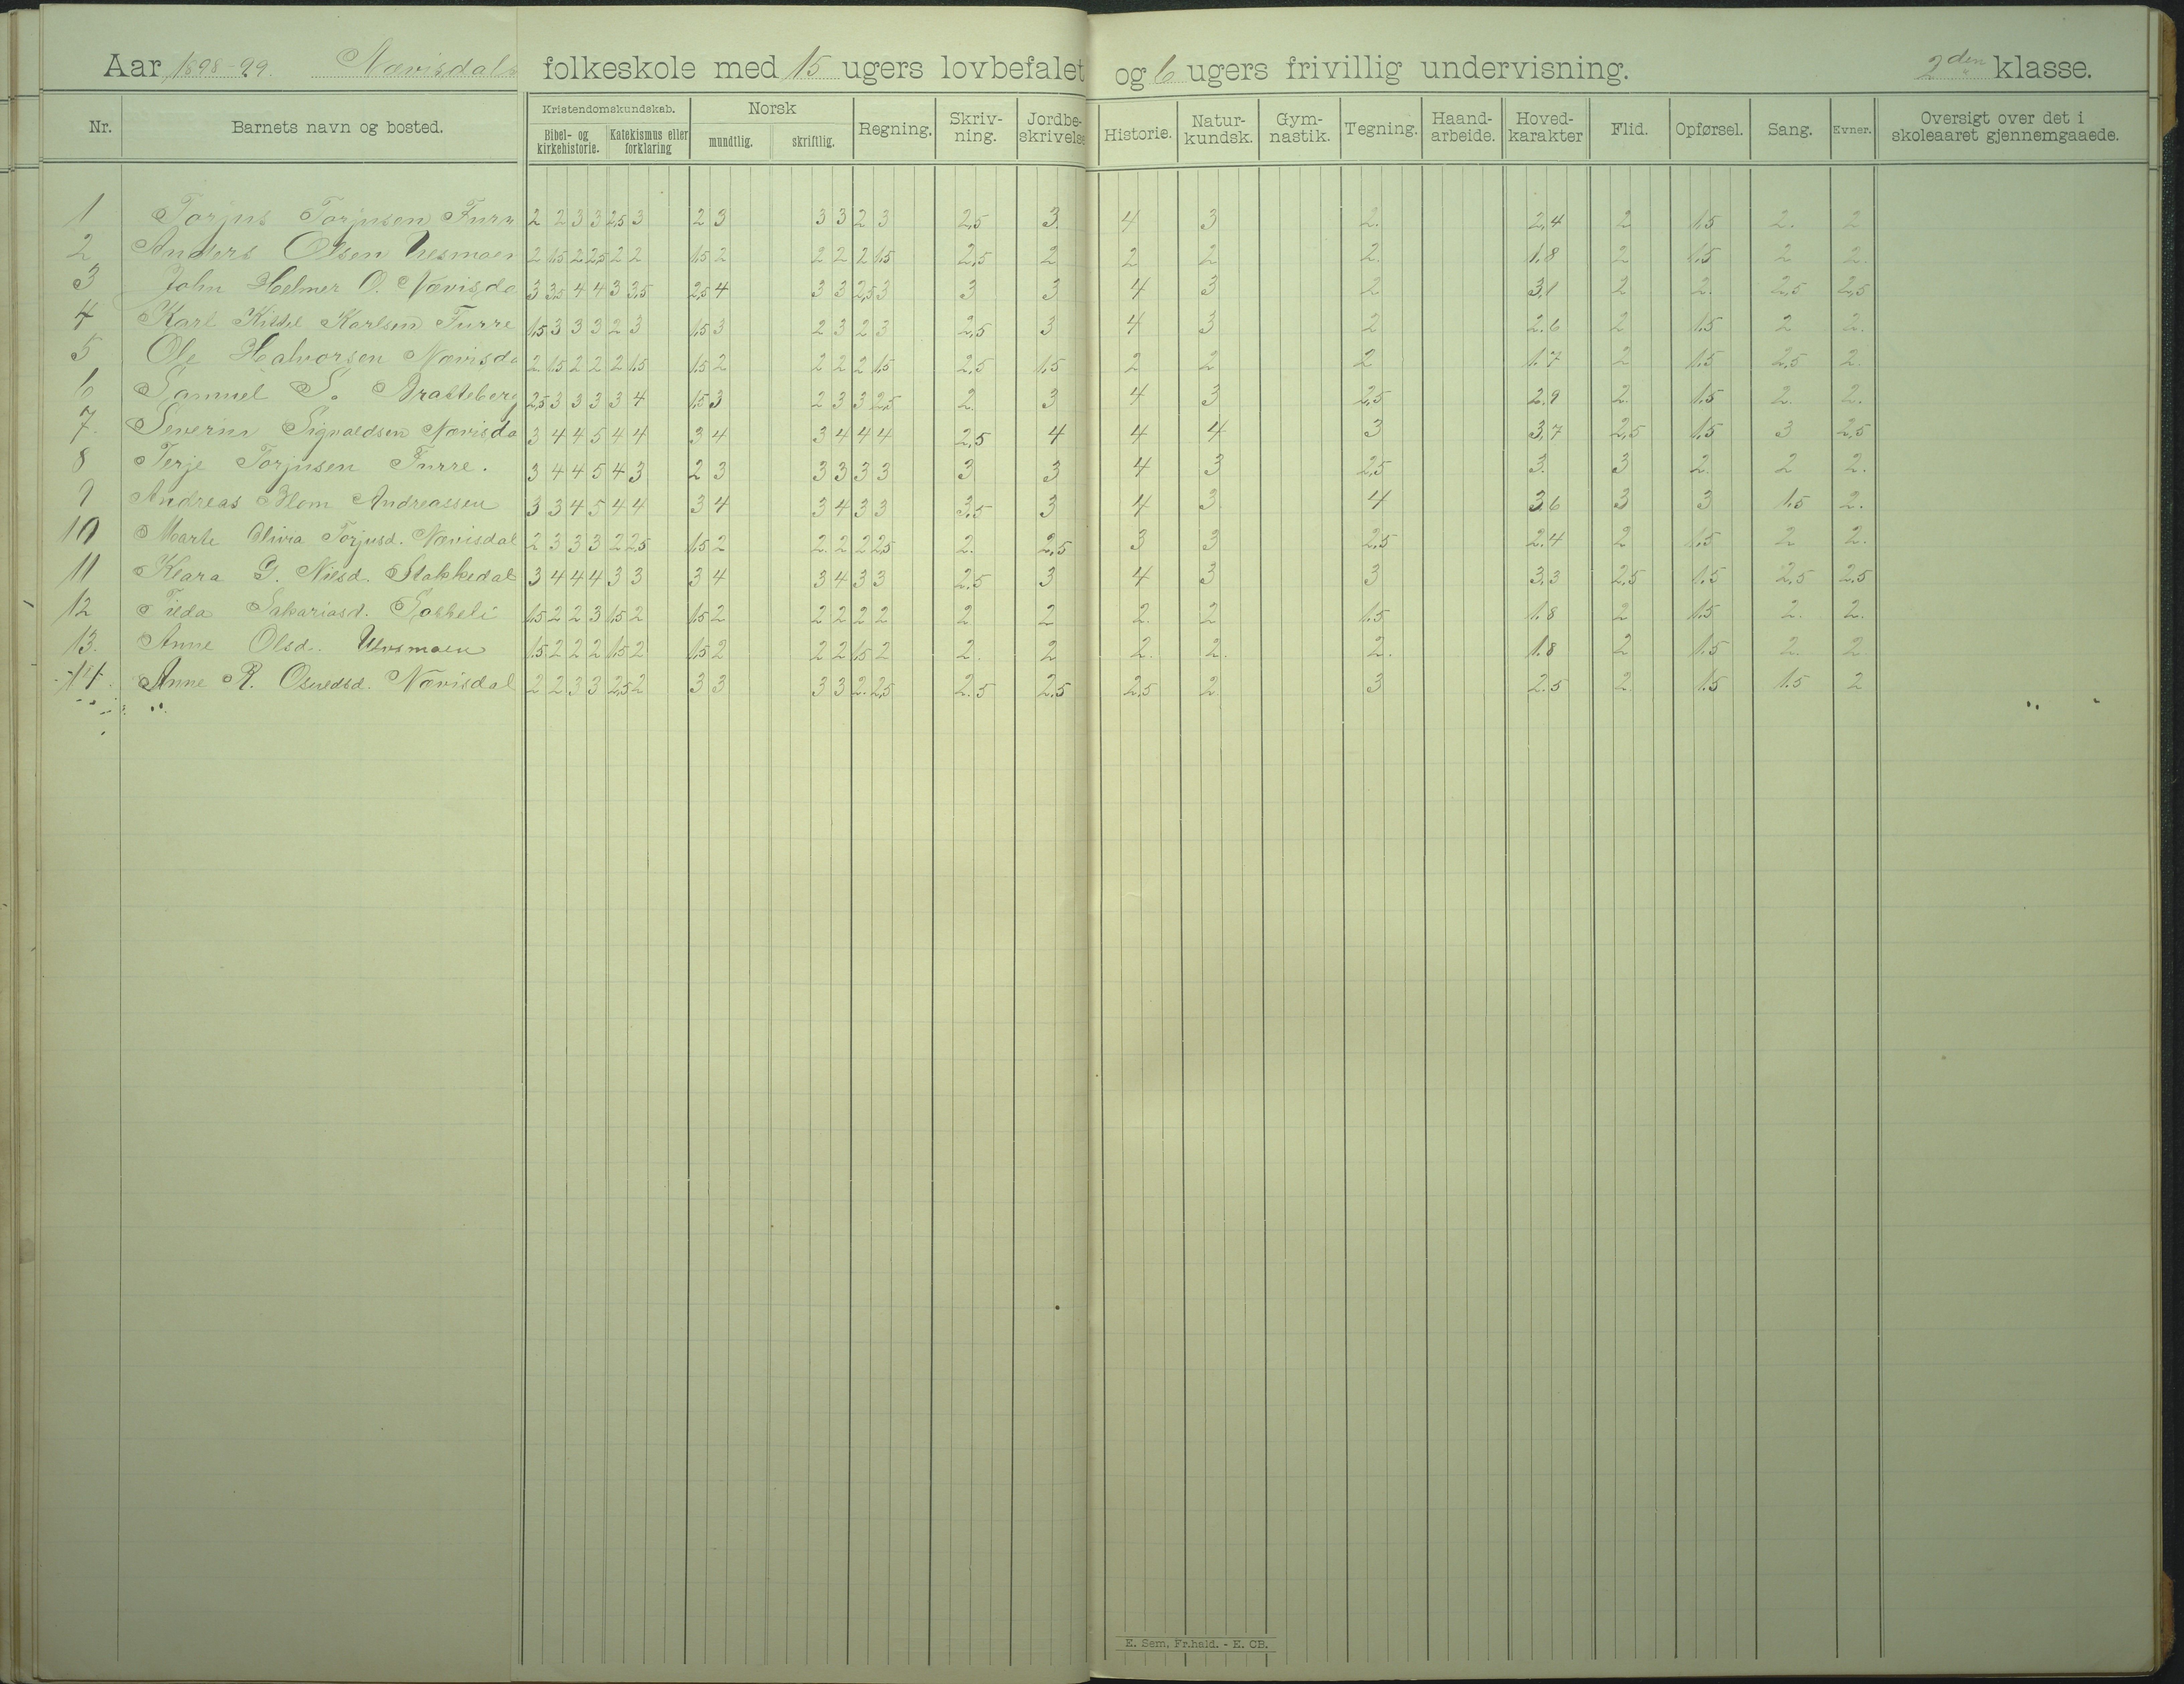 Aar 1898-99. Nævisdals folkeskole med 15 ugers lovbefalet og 6 ugers frivillig undervisning. 2den klasse.
Nr. Barnets navn og bosted. Kristendomskundskab. Bibel- og kirkehistorie. Katekismus eller forklaring Norsk mundtlig. skriftlig. Regning. Skriv-ning. Jordbe-skrivelse Historie. Natur-kundsk. Gym-nastik. Tegning. Haand-arbeide. Hoved-karakter Flid. Opførsel. Sang. Evner. Oversigt over det i skoleaaret gjennemgaaede.
1 Torjus Torjusen Furr 2 2 3 3 2,5 3 2 3 3 3 2 3 2,5 3. 4 3 2. 2,4 2 1.5 2. 2
2 Anders Olsen 2 1.5 2 2,5 2 2 1.5 2 2 2 2 1.5 2,5 2 2 2 2. 1.8 2 1.5 2 2.
3 John Helmer O. Nævisda 3 3,5 4 4 3 3,5 2,5 4 3 3 2,5 3 3 3 4 3 2 3,1 2 2. 2,5 2,5
4 Karl Kittil Karlsen Furre 1,5 3 3 3 2 3 1,5 3 2 3 2 3 2,5 3 4 3 2 2.6 2 1.5 2 2.
5 Ole Halvorsen Nævisda 2. 1.5 2 2 2 1.5 1.5 2 2 2 2 1.5 2,5 1,5 2 2 2 1.7 2 1.5 2,5 2
6 Samuel S. Bratteberg 2,5 3 3 3 3 4 1.5 3 2 3 3 2,5 2. 3 4 3 2,5 2.9 2. 1.5 2. 2.
7. Severin Sigvaldsen Nævisda 3 4 4 5 4 4 3 4 3 4 4 4 2,5 4 4 4 3 3,7 2,5 1,5 3 2,5
8 Terje Torjusen Furre. 3 4 4 5 4 3 2 3 3 3 3 3 3 3 4 3 2,5 3. 3 2. 2 2.
9 Andreas Blom Andreassen 3 3 4 5 4 4 3 4 3 4 3 3 3,5 3 4 3 4 3,6 3 3 1.5 2.
10 Marte Olivia Torjusd. Nævisdal 2 3 3 3 2 2,5 1.5 2 2. 2 2 2,5 2. 2,5 3 3 2.5 2.4 2 1.5 2 2.
11 Klara G. Nilsd. Stakkedal 3 4 4 4 3 3 3 4 3 4 3 3 2.5 3 4 3 3 3,3 2.5 1.5 2,5 2.5
12 Tilda Sakariasd. 1.5 2 2 3 1.5 2 1.5 2 2 2 2 2 2 2 2. 2 1.5 1.8 2 1.5 2. 2.
13. Anne Olsd. 1.5 2 2 2 1.5 2 1.5 2 2 2 1.5 2 2. 2 2. 2. 2. 1.8 2 1.5 2. 2
14. Anne R. Osuldsd. Nævisdal 2 2 3 3 2,5 2 3 3 3 3 2. 2,5 2.5 2,5 2.5 2 3 2.5 2 1.5 1.5 2
E. Sem, Fr.hald. - E. CB.